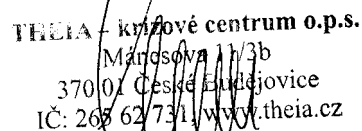 THEIA – krizové centrum o.p.s.
Mánesova 11/3b
370 01 České Budějovice
IČ: 265 62 731, www.theia.cz